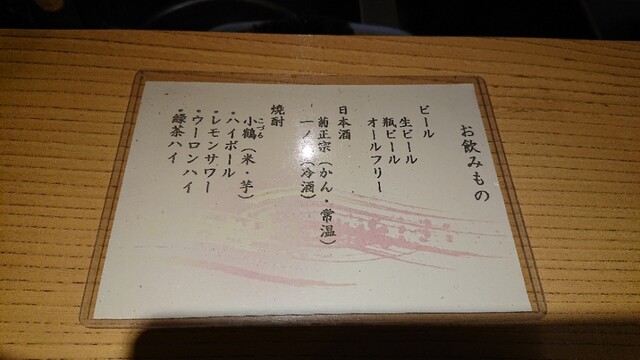 お飲みもの
ビール
生ビール
瓶ビール
オールフリー
日本酒
菊正宗（かん・常温）
一ノ（冷酒）
焼酎
小鶴（米・芋）
こづる
・ハイボール
・レモンサワー
・ウーロンハイ
・緑茶ハイ